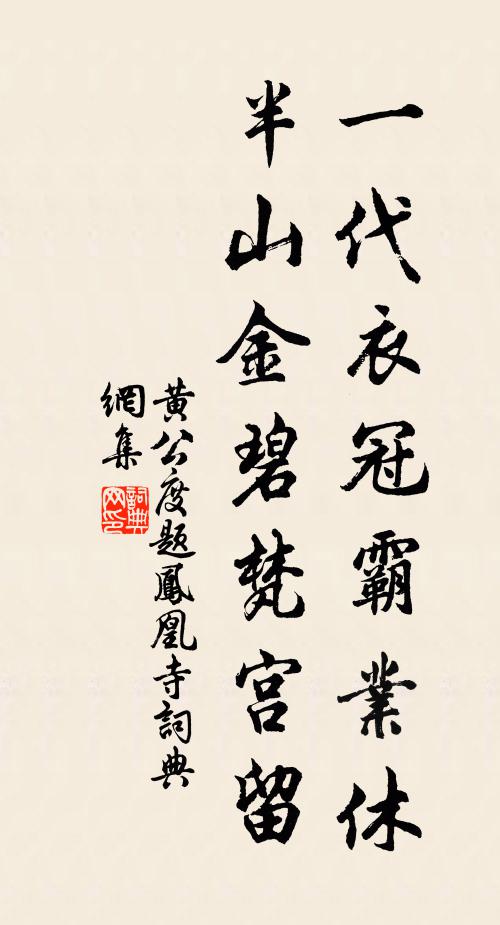 一代衣冠霸業休
半山金碧梵宮留
黃公度題鳳凰寺詞典
網集
詞典网印